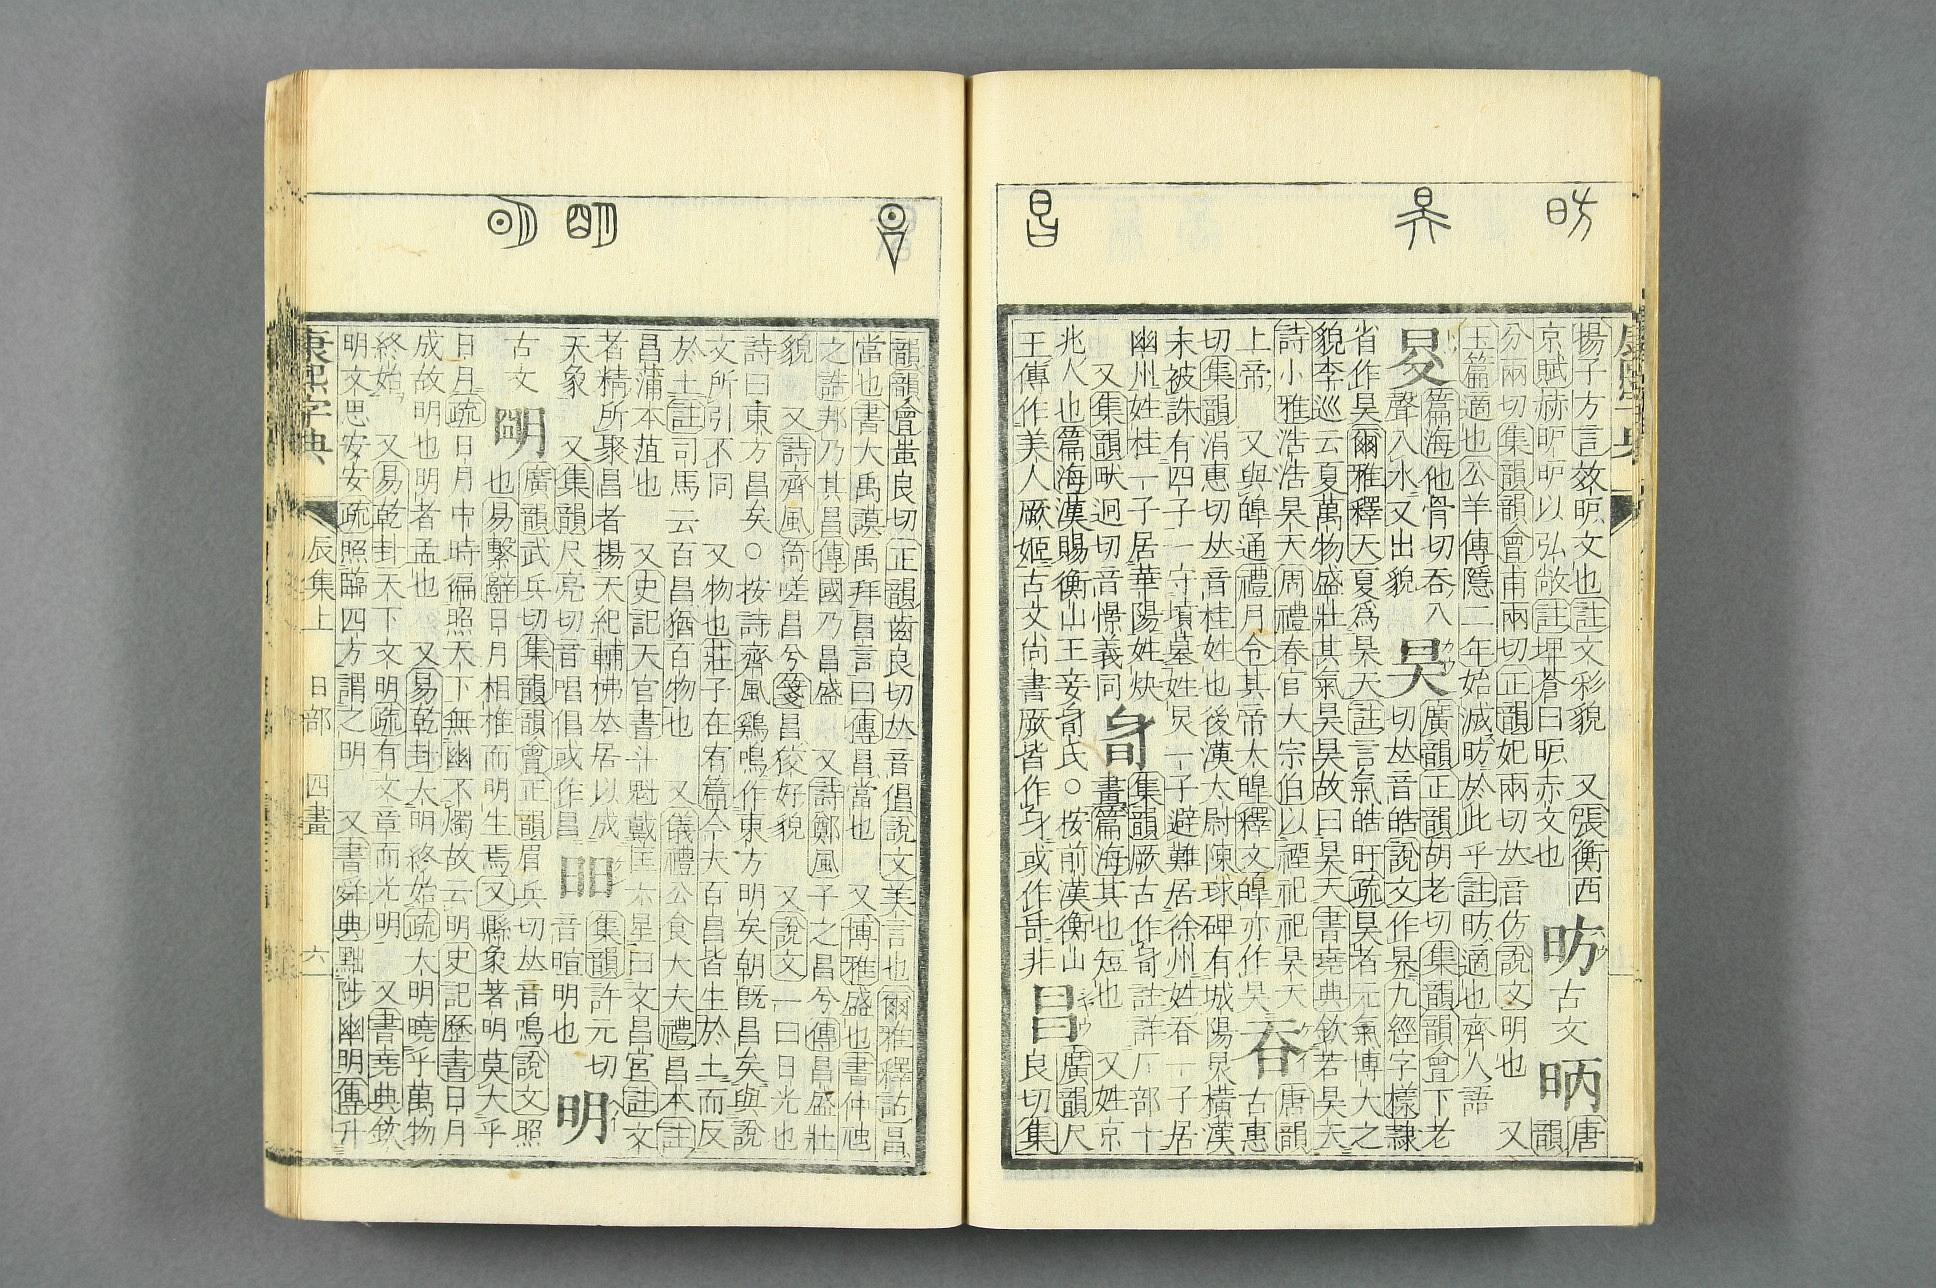 昉
昊
昌
揚子方言效昞文也註文彩貌　又張衡西
京賦赫昈昈以弘敞註埤蒼曰昞赤文也
昉
古文
昞
唐韻
分兩切集韻韻會甫兩切正韻妃兩切𠀤音仿說文明也　又
玉篇適也公羊傳隱二年始滅昉於此乎註昉適也齊人語
篇海他骨切吞入
聲入水又出貌
昊
廣韻正韻胡老切集韻韻會下老
切𠀤音皓說文作昦九經字樣隷
省作昊爾雅釋天夏爲昊天註言氣皓旰疏昊者元氣博大之
貌李巡云夏萬物盛壯其氣昊昊故曰昊天書堯典欽若昊天
詩小雅浩浩昊天周禮春官大宗伯以禋祀祀昊天
上帝　又與皞通禮月令其帝太皞釋文皞亦作昊
古惠
唐韻
切集韻涓惠切𠀤音桂姓也後漢太尉陳球碑有城陽炅橫漢
末被誅有四子一守墳墓姓炅一子避難居徐州姓昋一子居
幽州姓桂一子居華陽姓炔
集韻厥古作𣅔註詳厂部十
又集韻畎迥切音憬義同
畫篇海其也短也　又姓京
兆人也篇海漢賜衡山王妾𣅔氏○按前漢衡山
王傳作美人厥姬古文尚書厥皆作𠂲或作𣅔非
昌
廣韻尺
良切集
明
韻韻會蚩良切正韻齒良切𠀤音倡說文美言也爾雅釋詁昌
當也書大禹謨禹拜昌言曰傳昌當也　又博雅盛也書仲虺
之誥邦乃其昌傳國乃昌盛　又詩鄭風子之昌兮傳昌盛壯
貌　又詩齊風猗嗟昌兮箋昌佼好貌　又說文一曰日光也
詩曰東方昌矣○按詩齊風雞鳴作東方明矣朝旣昌矣與說
文所引不同　又物也莊子在宥篇今夫百昌皆生於土而反
於土註司馬云百昌猶百物也　又儀禮公食大夫禮昌本註
昌蒲本菹也　又史記天官書斗魁戴匡六星曰文昌宮註文
者精所聚昌者揚天紀輔拂𠀤居以成
天象　又集韻尺亮切音唱倡或作昌
昍
集韻許元切
音暄明也
明
古文
朙
廣韻武兵切集韻韻會正韻眉兵切𠀤音鳴說文照
也易繫辭日月相推而明生焉又縣象著明莫大乎
日月疏日月中時徧照天下無幽不燭故云明史記歷書日月
成故明也明者孟也　又易乾卦大明終始疏大明曉乎萬物
終始　又易乾卦天下文明疏有文章而光明　又書堯典欽
明文思安安疏照臨四方謂之明　又書舜典黜陟幽明傳升
康熙字典　辰集上　日部　四畫　六